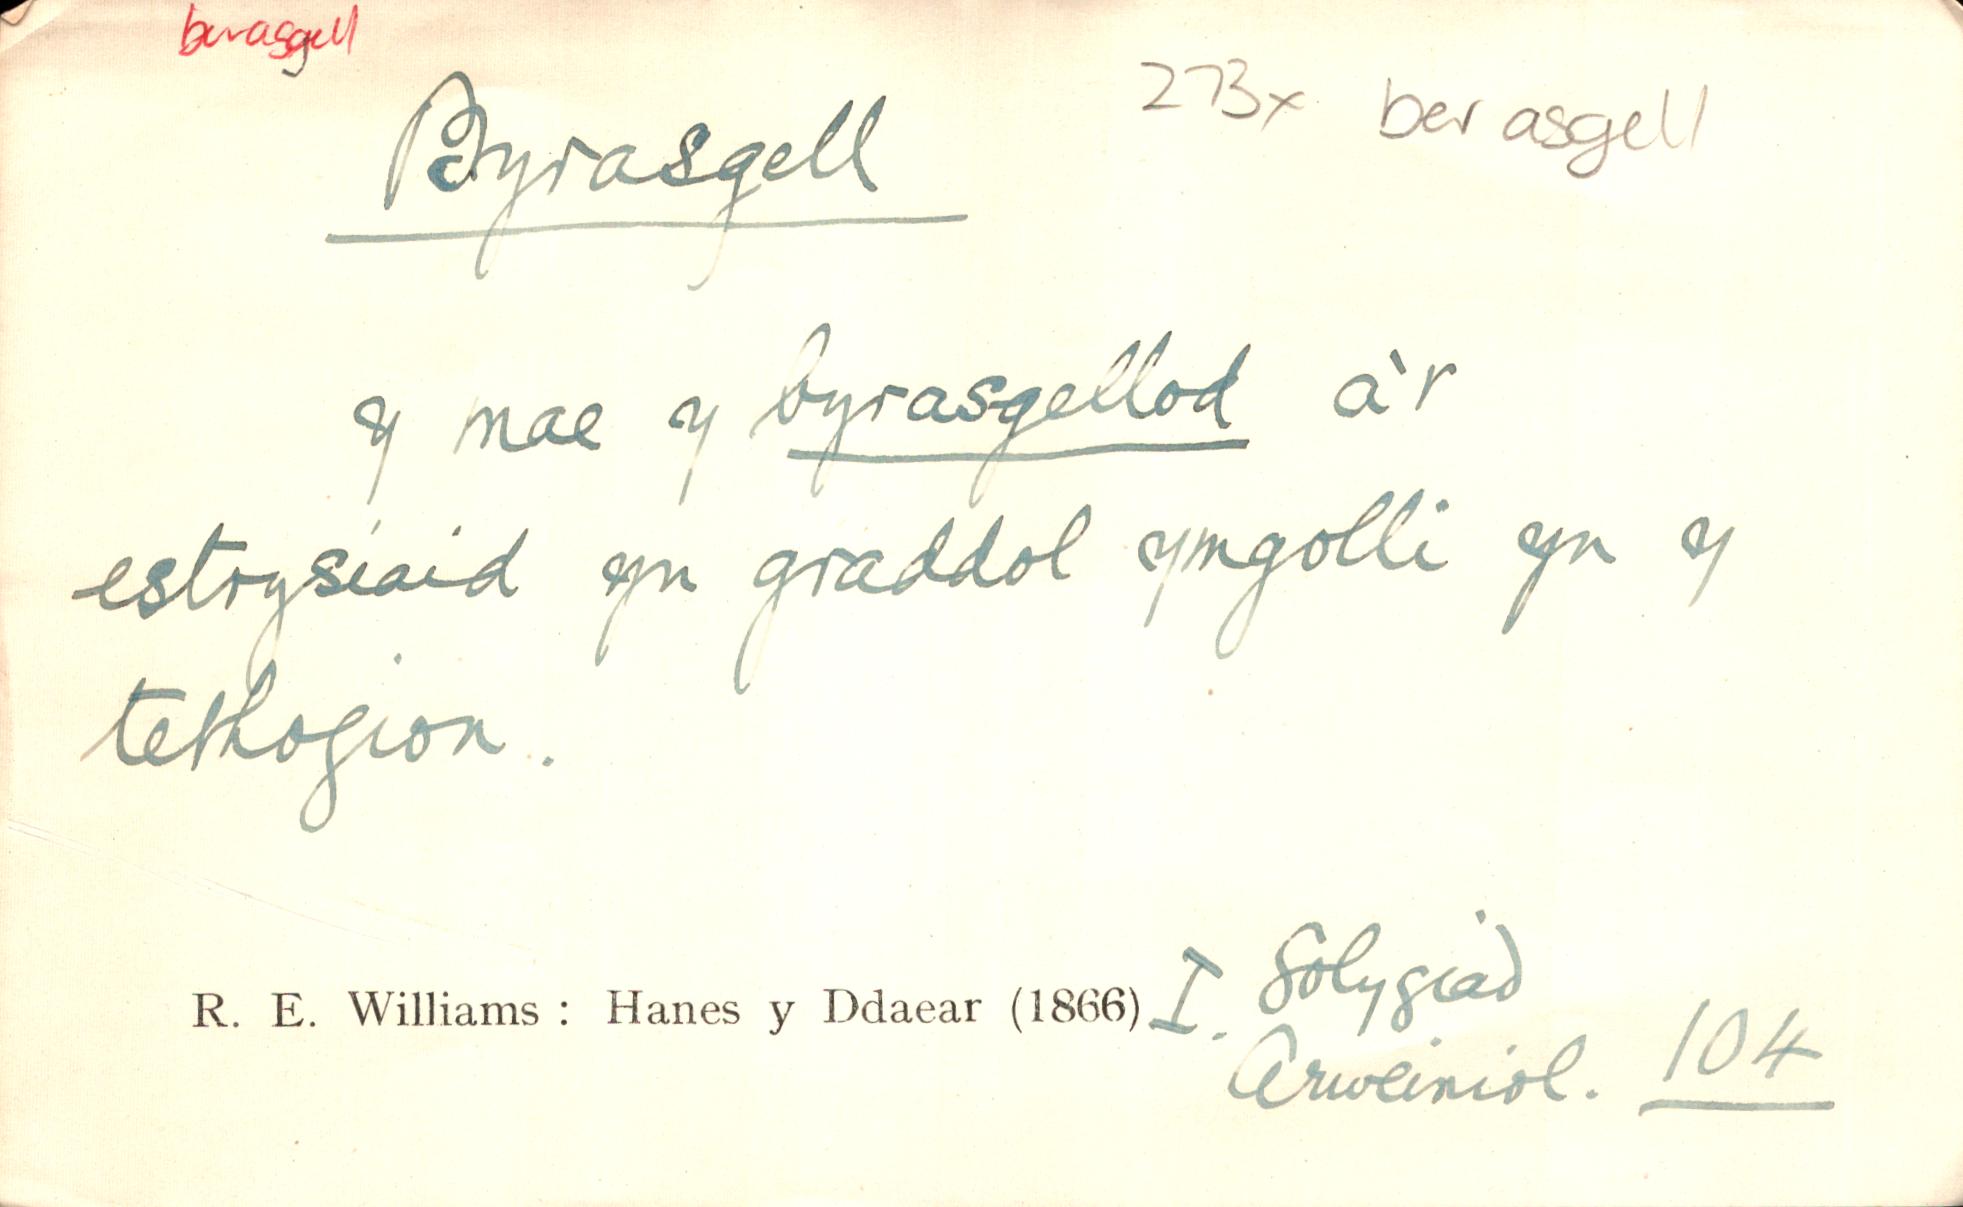 berasgell
273x berasgell
Byrasgell
Y mae y byrasgellod a'r
estrysiaid yn graddol ymgolli yn y
tethogion.
R. E. Williams : Hanes y Ddaear (1866) I. Golygiad
Arweiniol. 104